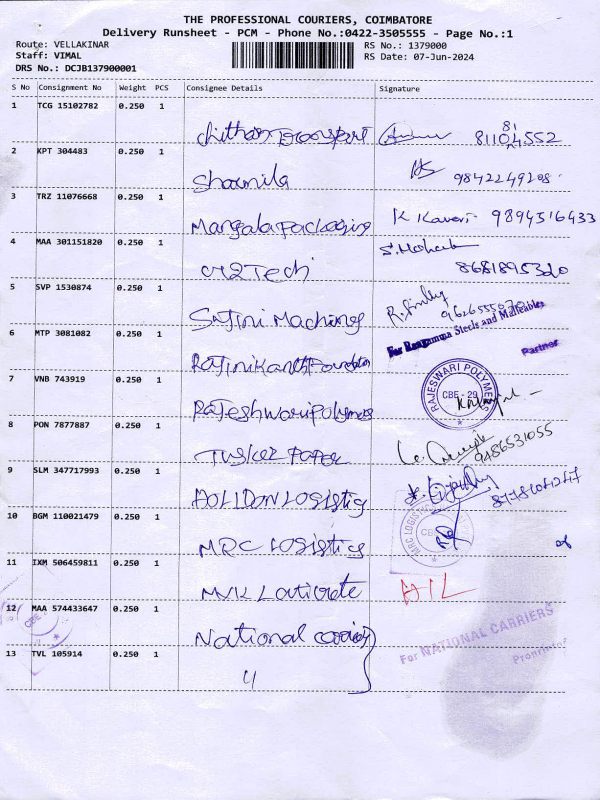 THE PROFESSIONAL COURIERS, COIMBATORE
Delivery Runsheet - PCM - Phone No.:0422-3505555 - Page No.:1
Route: VELLAKINAR
Staff: VIMAL
DRS No.: DCJB137900001
RS No.: 1379000
RS Date: 07-Jun-2024
S No Consignment No Weight PCS Consignee Details Signature
1 TCG 15102782 0.250 1
Transport 81104552
81
2 KPT 304483 0.250 1
Sharmila 9842249208
3 TRZ 11076668 0.250 1
Mangala Packaging K Kaveri 9894516433
4 MAA 301151820 0.250 1
S. Mohan
M2Tech 8681895320
5 SVP 1530874 0.250 1
Sajini Machines
For Rangamma Steels and Malleables
Partner
6 MTP 3081082 0.250 1
Rajinikanth Foundation
7 VNB 743919 0.250 1
Rajeshwari Polymers
RAJESWARI POLYMERS
CBE - 29
8 PON 7877887 0.250 1
Tusker Paper 9486531055
9 SLM 347717993 0.250 1
Logistics
10 BGM 110021479 0.250 1
MRC Logistics
MRC LOGISTICS
CBE
11 IXM 506459811 0.250 1
MVK
12 MAA 574433647 0.250 1
CBE
National
For NATIONAL CARRIERS
13 TVL 105914 0.250 1
"